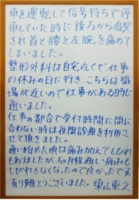 車を運転して信号待ちで停
車していた時に後ろから追突
され首と腰と左腕を痛めて
しまいました。
整形外科は自宅近くで、仕事
の休みの日に行き こちらは職
場が近いので仕事がある時に
通いました。
仕事の都合で受付時間に間に
合わない時は夜間診療を利用さ
せて頂きました。
通い始めた頃は痛みが
もありましたが、今は程遠い痛みも
しびれもなくなったので良かったです。
有り難とうございました。